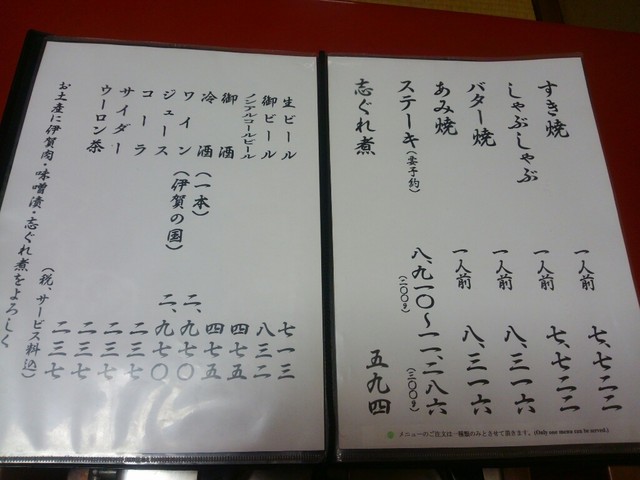 すき焼 一人前 七、七二二
しゃぶしゃぶ 一人前 七、七二二
バター焼 一人前 八、三一六
あみ焼 一人前 八、三一六
ステーキ(要予約) 八、九一〇〜一一、二八六
(二〇〇g) (二〇〇g)
志ぐれ煮 五九四
●メニューのご注文は一種類のみとさせて頂きます。(Only one menu can be served.)
生ビール 七一三
御ビール 八三二
ノンアルコールビール 四七五
御酒 四七五
冷酒(一本) 二、九七〇
ワイン(伊賀の国) 二、九七〇
ジュース 二三七
コーラ 二三七
サイダー 二三七
ウーロン茶 二三七
(税、サービス料込)
お土産に伊賀肉・味噌漬・志ぐれ煮をよろしく